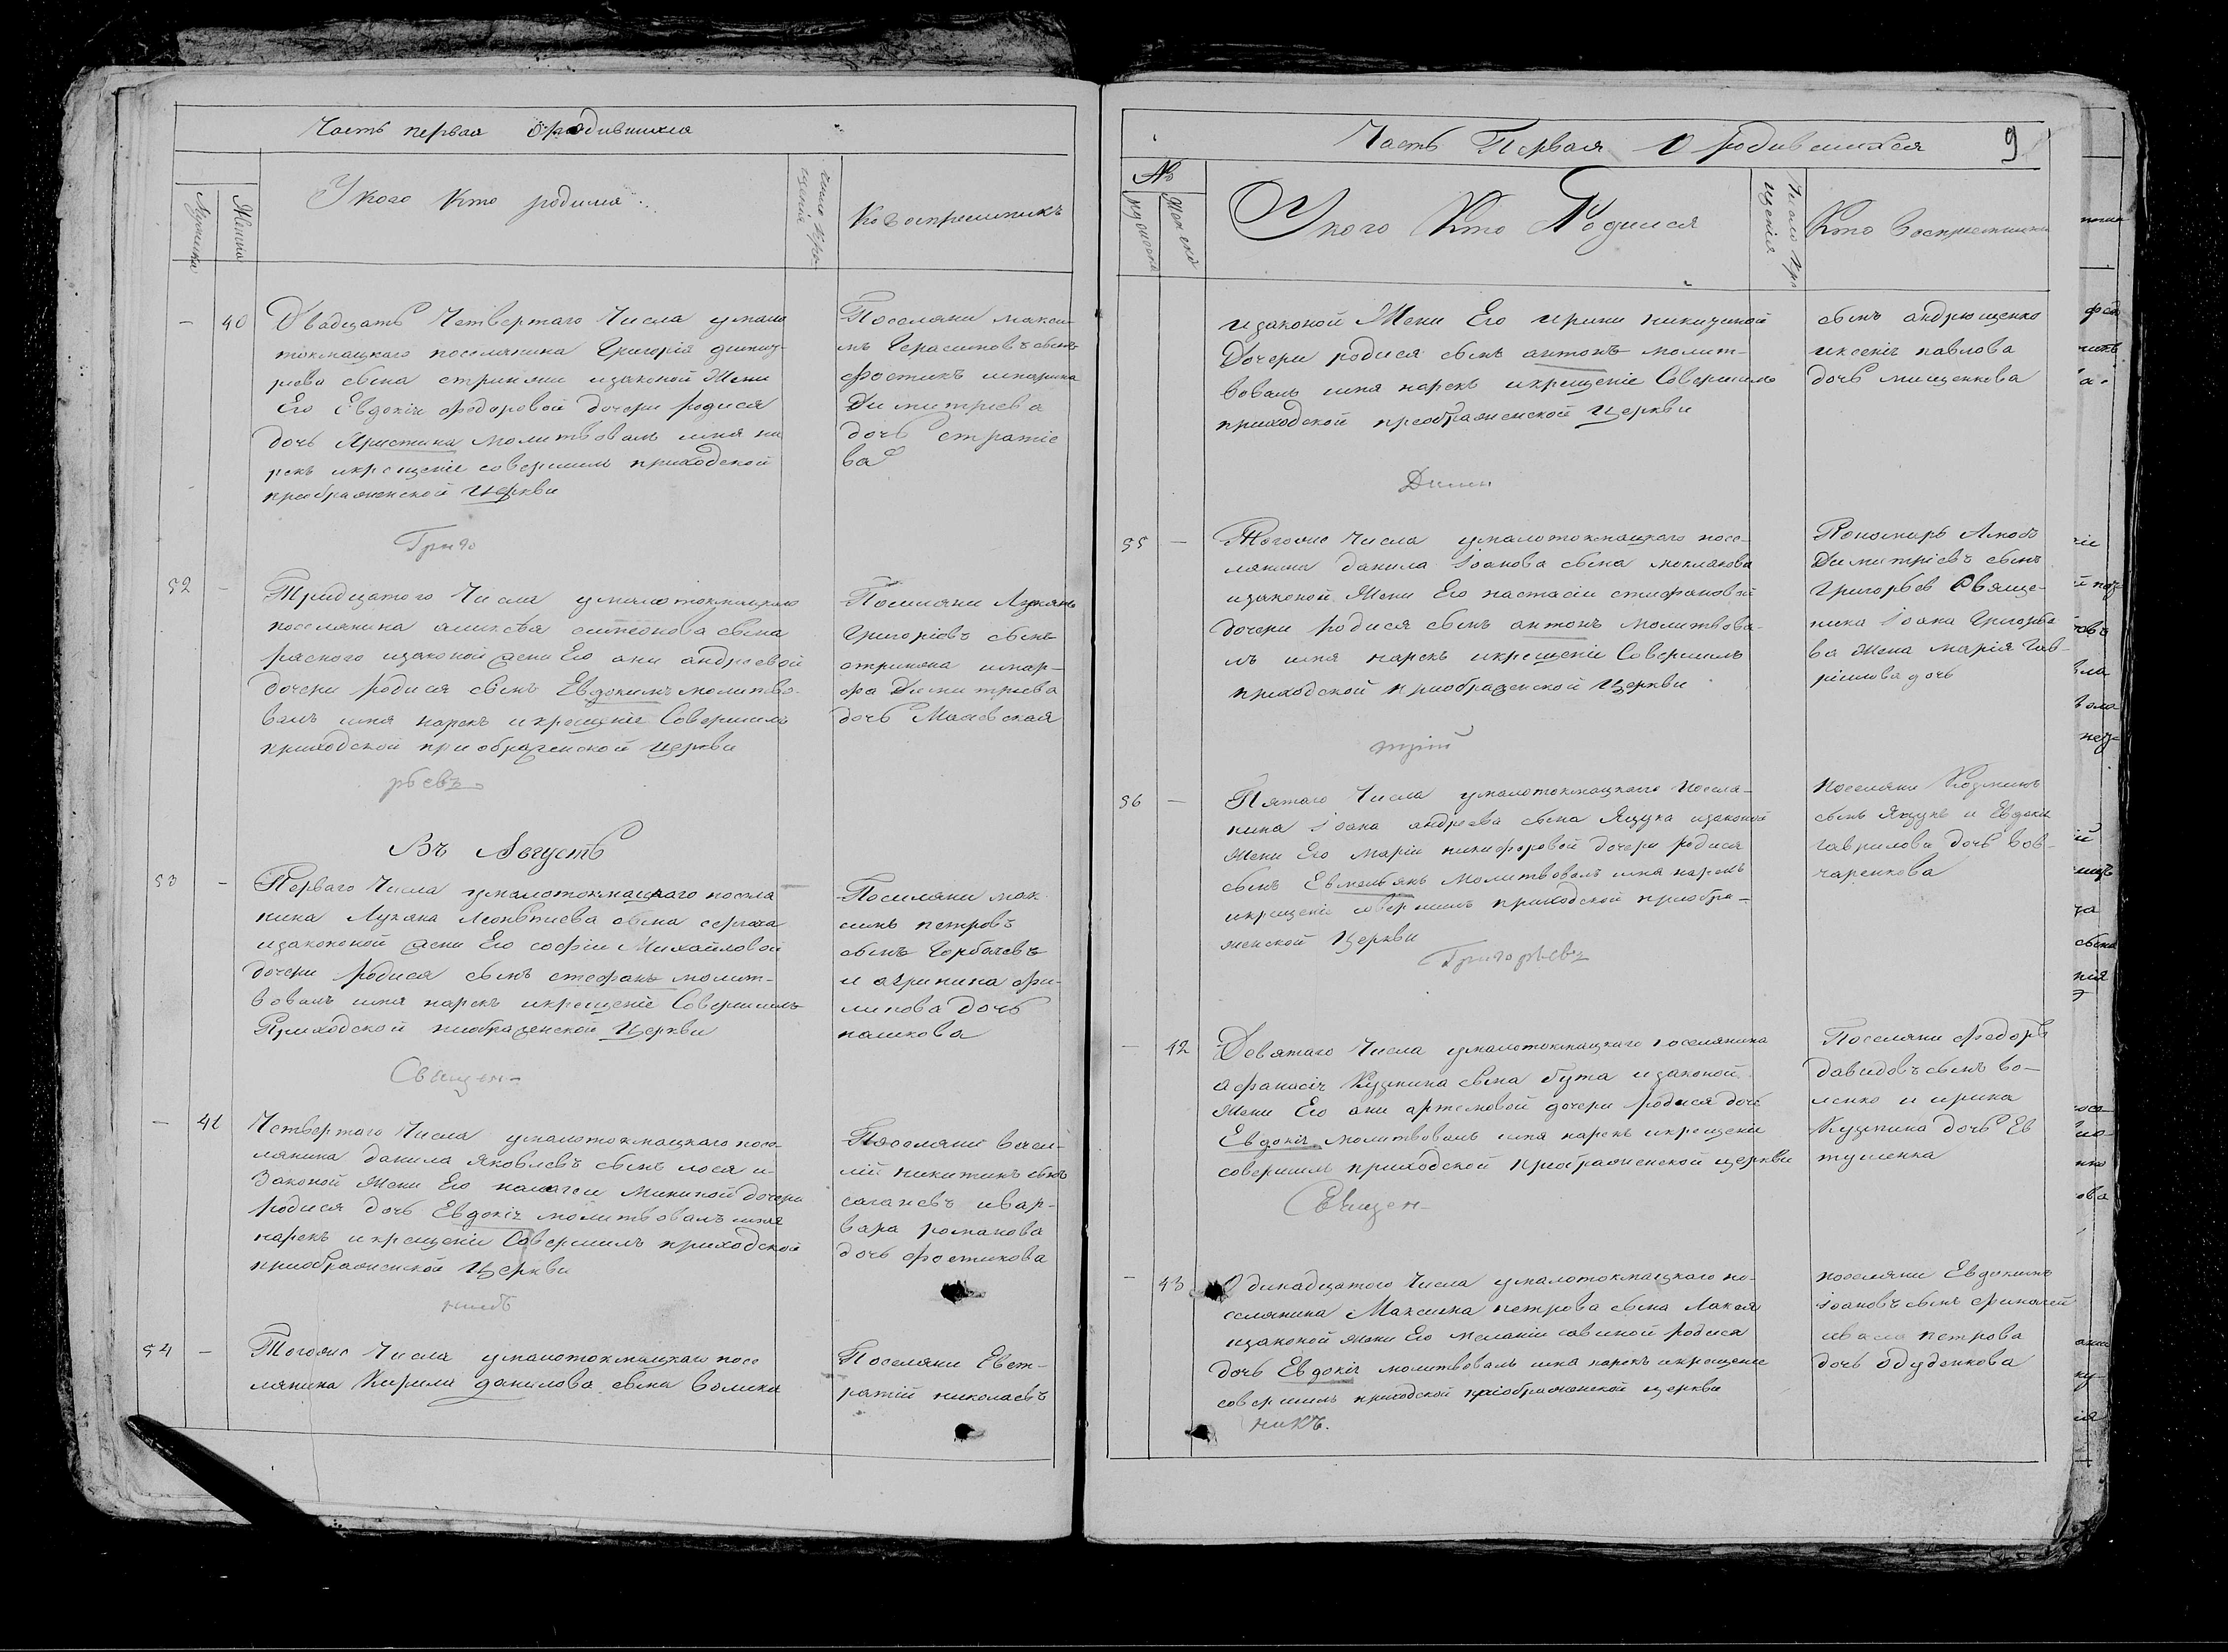 Часть первая О родившихся
Мужеска
Женска
У кого кто родился
число крещенія
Кто воспреемникъ
— 40
Двадцать Четвертаго Числа умало
токмацкаго поселянина Григорія димит-
риева сына стрикяни изаконой Жени
Его Евдокіи федоровой дочери родися
дочь Христина молитвовалъ имя на
рекъ икрещеніе совершилъ приходской
преображенской Церкви
Поселяни макси-
мъ Герасимовъ сынъ
фостикъ имарина
Димитриева
дочь стратіе
ва
Григо
52 —
Тридцатого Числа умалотокмацкаго
поселянина аликсѣя симеонова сына
раского изаконой жени Его ани андреевой
дочери родися сынъ Евдокимъ молитво-
валъ имя нарекъ икрещеніе Совершилъ
приходской приображенской Церкви
Поселяни Лукянъ
Григоріевъ сынъ
отрикяна имар-
фа Димитриева
дочь Маловская
рьевъ
Въ Августѣ
53 —
Перваго Числа умалотокмацкаго посела
нина Лукяна Леонтиева сына сергача
изакононой жени Его софіи Михайловой
дочери родися сынъ стефанъ молит-
вовалъ имя нарекъ икрещеніе Совершилъ
Приходской приображенской Церкви
Поселяни мак
симъ петровъ
сынъ Горбачевъ
и агрипина фи-
липова дочь
пашкова
Священ-
— 41
Четвертаго Числа умалотокмацкаго посе-
лянина данила яковлевъ сынъ лося и
Законой Жени Его палагеи Мининой дочери
родися дочь Евдокіи молитвовалъ имя
нарекъ икрещеніе Совершилъ приходской
приображенской Церкви
Поселяни васи-
лій никитинъ сынъ
саганевъ ивар-
вара романова
дочь фостикова
никъ
54 —
Тогоже Числа умалотокмацкаго посе
лянина Кирила данилова сына волика
Поселяни Евст-
ратій николаевъ
Часть Первая О родившихся
9
№
мужеска
женска
У кого Кто Родился
Число крещенія
Кто воспреемники
изаконой Жени Его ирини никитиной
Дочери родися сынъ антонъ молит-
вовалъ имя нарекъ икрещеніе Совершилъ
приходской преображенской Церкви
сынъ андрющенко
иксеніи павлова
дочь мищенкова
Дими
55 —
Тогоже Числа умалотокмацкаго посе-
лянина данила Іоанова сына
изаконой Жени Его настасіи стифановой
дочери родися сынъ антонъ молитвова-
лъ имя нарекъ икрещеніе Совершилъ
приходской приображенской Церкви
Пономарь Яковъ
Димитріевъ сынъ
Григорьев Свяще-
ника Іоана Григорье
ва жена марія Гав-
ріилова дочь
трій
56 —
Пятаго Числа умалотокмацкаго посела-
нина Іоана андреева сына Яцука изаконой
Жени Его маріи никифоровой дочери родися
сынъ Евмельянъ молитвовалъ имя нарекъ
икрещеніе совершилъ приходской приобра-
женской Церкви
поселяни Козминъ
сынъ Яцукъ и Евдокія
гаврилова дочь вов-
чаренкова
Григорьевъ
— 42
Девятаго Числа умалотокмацкаго поселянина
афанасіи Кузмина сына бута изаконой
Жени Его ани артемовой дочери родися дочь
Евдокіи молитвовалъ имя нарекъ икрещеніе
совершилъ приходской преображенской церкви
Поселяни федоръ
давидовъ сынъ во-
ленко и ирина
Кузмина дочь Ев
тушенка
Священ-
— 43
Одинадцатого Числа умалотокмацкаго по-
селянина Максима петрова сына Лакея
изаконой жени Его меланіи савиной родися
дочь Евдокіи молитвовалъ имя нарекъ икрещеніе
совершилъ приходской преіображенской церкви
поселяни Евдокимъ
Іоановъ сынъ
петрова
дочь одуденкова
никъ.